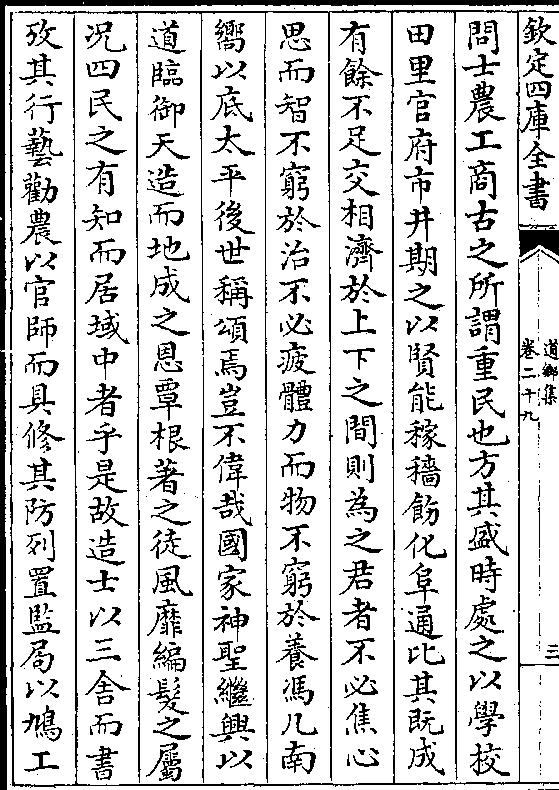 欽定四庫全書
道鄉集
卷二十九
三
問士農工商古之所謂重民也方其盛時處之以學校
田里官府市井期之以賢能稼穡飭化阜通比其既成
有餘不足交相濟於上下之間則為之君者不必焦心
思而智不窮於治不必疲體力而物不窮於養馮几南
嚮以底太平後世稱頌焉豈不偉哉國家神聖繼興以
道臨御天造而地成之恩覃根著之徒風靡編髮之屬
況四民之有知而居域中者乎是故造士以三舍而書
攷其行藝勸農以官師而具修其防列置監局以鳩工